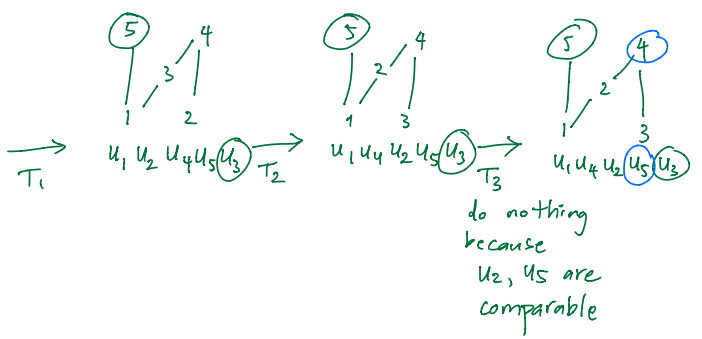 5 4
3
1 2
T₁ u₁ u₂ u₄ u₅ u₃
5 4
2
1 3
T₂ u₁ u₄ u₂ u₅ u₃
5 4
2
1 3
T₃ u₁ u₄ u₂ u₅ u₃
do nothing
because
u₂, u₅ are
comparable